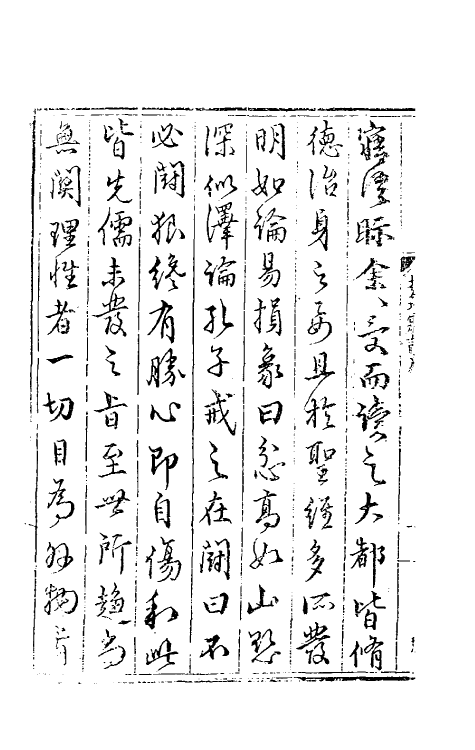 寤清眎余余受而讀之大都皆脩
德治身之要且於聖經多所發
明如論易損象曰忿高如山慾
深似澤論孔子戒之在鬭曰不
必鬭狠纔有勝心即自傷和此
皆先儒未發之旨至世所趨尚
無關理性者一切目為外物